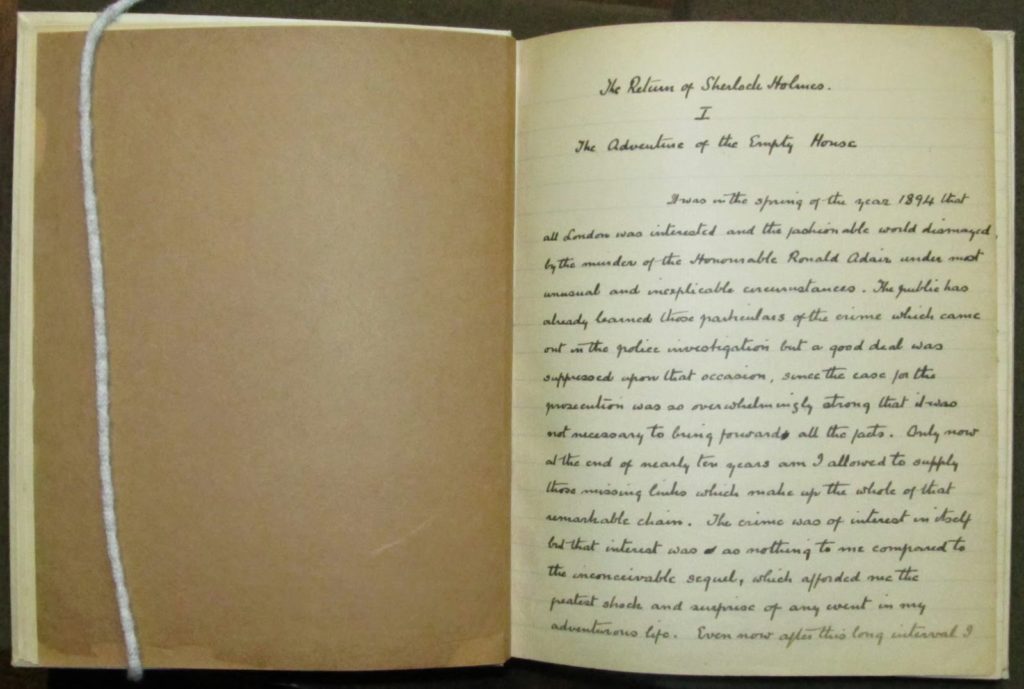 The Return of Sherlock Holmes.
I
The Adventure of the Empty House
It was in the spring of the year 1894 that
all London was interested and the fashionable world dismayed,
by the murder of the Honourable Ronald Adair under most
unusual and inexplicable circumstances. The public has
already learned those particulars of the crime which came
out in the police investigation but a good deal was
suppressed upon that occasion, since the case for the
prosecution was so overwhelmingly strong that it was
not necessary to bring forward all the facts. Only now
at the end of nearly ten years am I allowed to supply
those missing links which make up the whole of that
remarkable chain. The crime was of interest in itself
but that interest was as nothing to me compared to
the inconceivable sequel, which afforded me the
greatest shock and surprise of any event in my
adventurous life. Even now after this long interval I